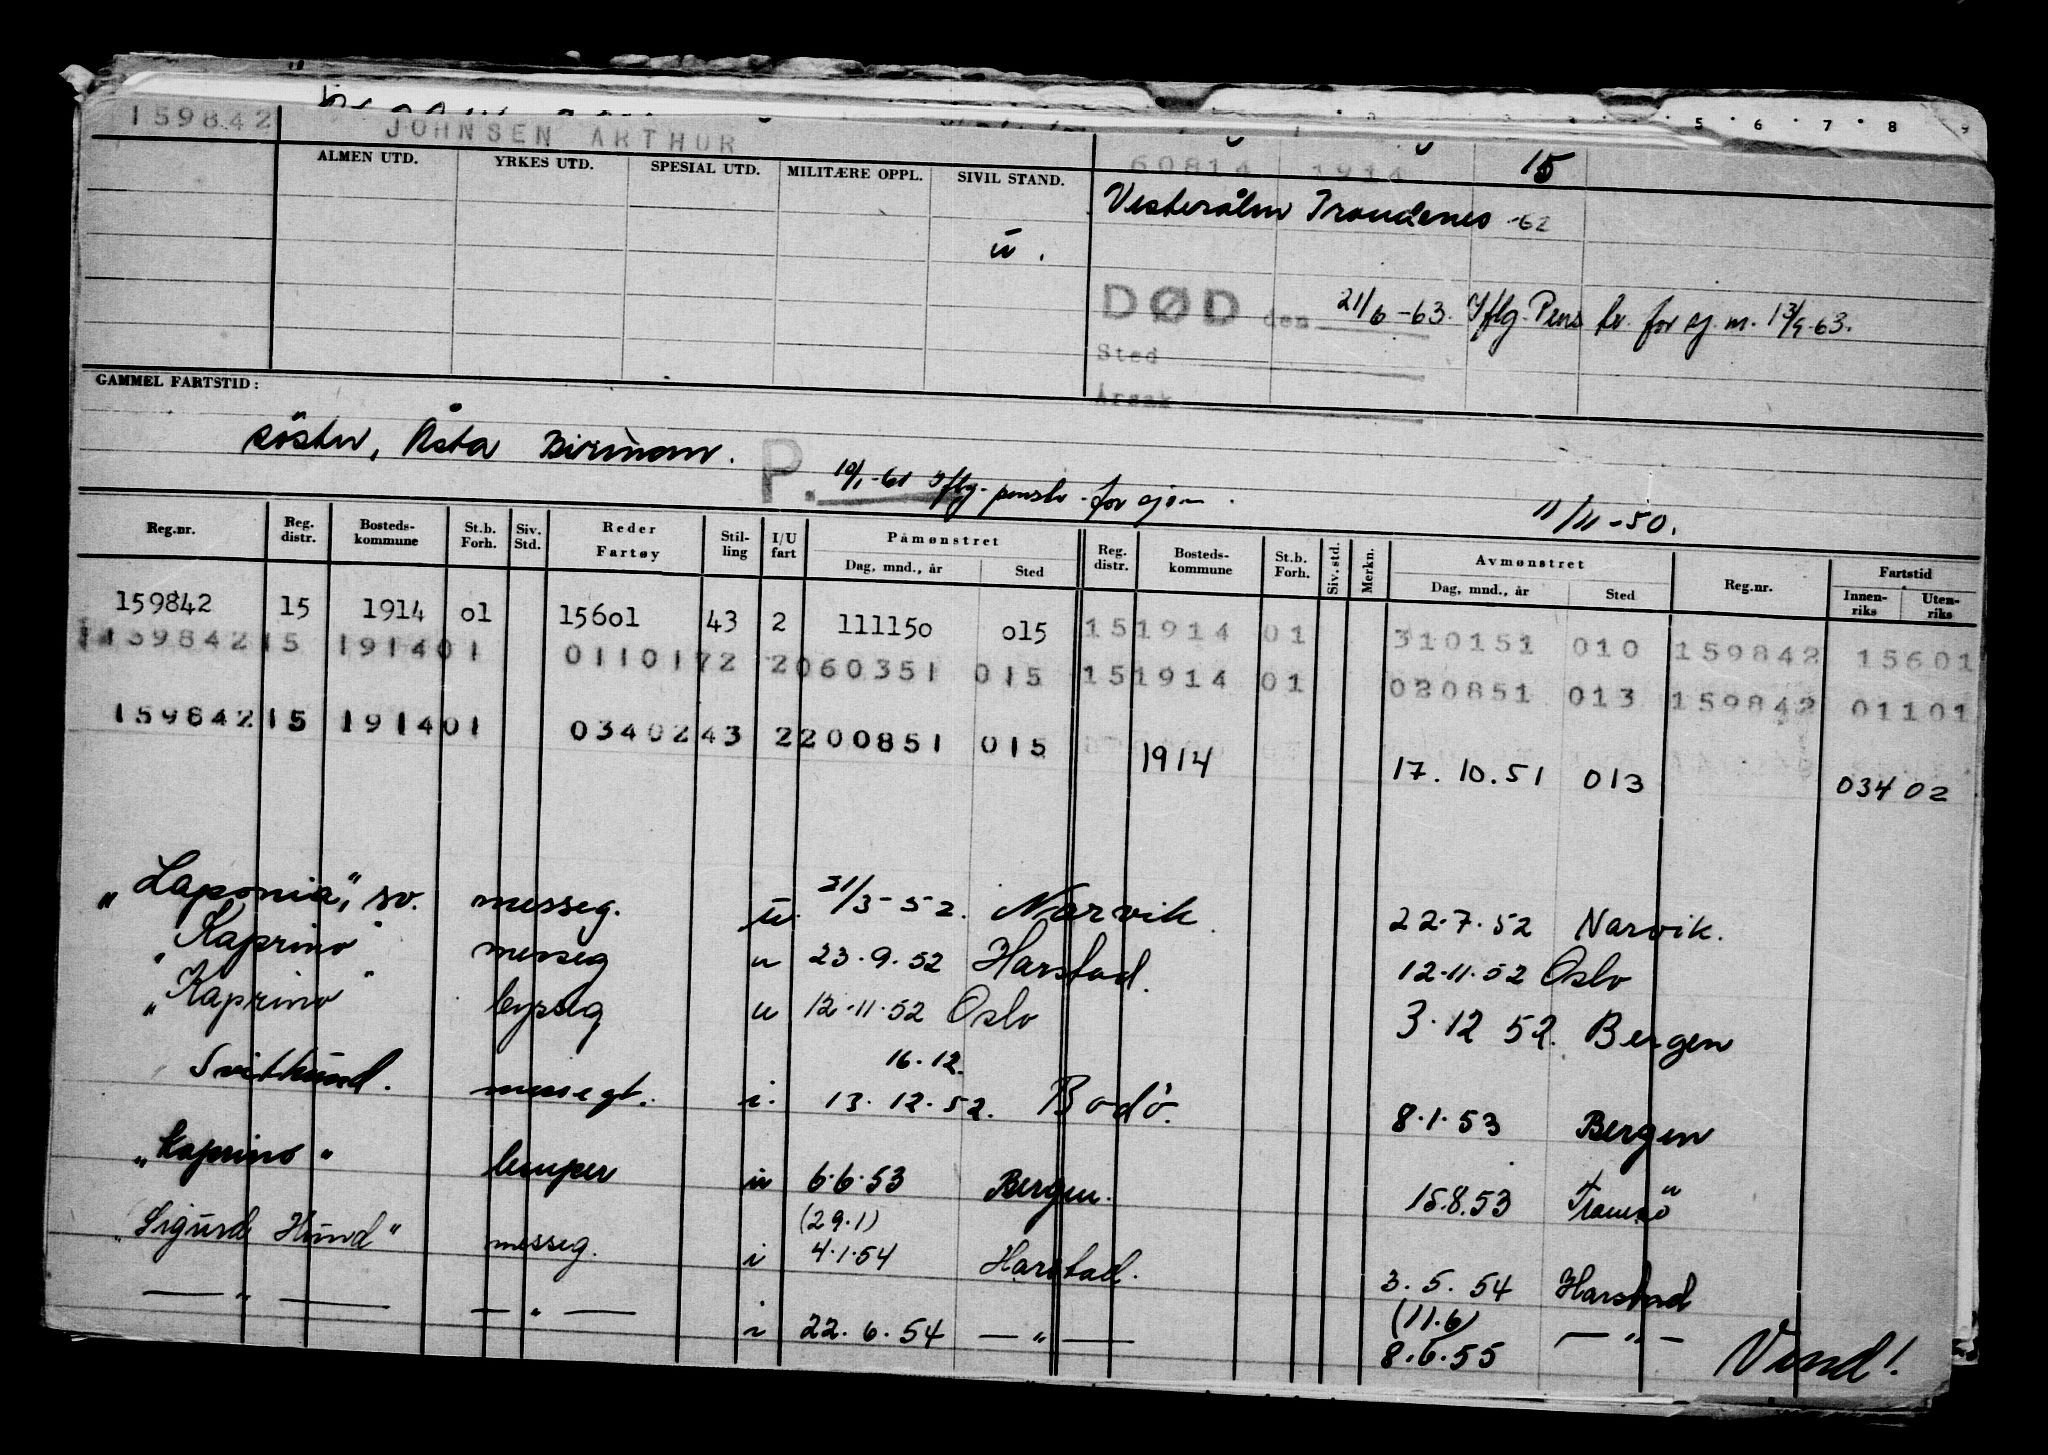 5 6 7 8 9
159842 JOHNSEN ARTHUR 60814 1914 15
ALMEN UTD. YRKES UTD. SPESIAL UTD. MILITÆRE OPPL. SIVIL STAND.
Vesterålen Trondenes -62
u.
DØD den 21/6-63. Iflg. Pens tr. for sj. m. 13/9-63.
Sted
Årsak
GAMMEL FARTSTID:
söster, Åsta
P. 10/1-61 Iflg. penstr. for sjøm.
11/11-50.
Reg.nr. Reg. distr. Bosteds-kommune St.b. Forh. Siv. Std. Reder Fartøy Stil-ling I/U fart Påmønstret Dag, mnd., år Sted Reg. distr. Bosteds-kommune St.b. Forh. Siv. std. Merkn. Avmønstret Dag, mnd., år Sted Reg.nr. Fartstid Innen-riks Uten-riks
159842 15 1914 o1 156o1 43 2 11115o o15 15 1914 01 310151 010 159842 15601
159842 15 1914 01 01101 72 2 060351 015 15 1914 01 020851 013 159842 01101
159842 15 1914 01 03402 43 2 200851 015 1914 17.10.51 013 034 02
"Laponia", sv. messeg. u. 31/3-52. Narvik 22.7.52 Narvik.
"Kaprino" messeg u 23.9.52 Harstad. 12.11.52 Oslo
"Kaprino" bysseg u 12.11.52 Oslo 3.12 52. Bergen
16.12.
Svithund. messegt. i. 13.12.52. Bodö. 8.1.53 Bergen
"Kaprino" lemper u 6.6.53 Bergen. 15.8.53 Tromsö
(29.1)
"Sigurd Hund" messeg. i 4.1.54 Harstad. 3.5.54 Harstad
(11.6)
— " — — " — i 22.6.54 — " — 8.6.55 — " —
Vend!